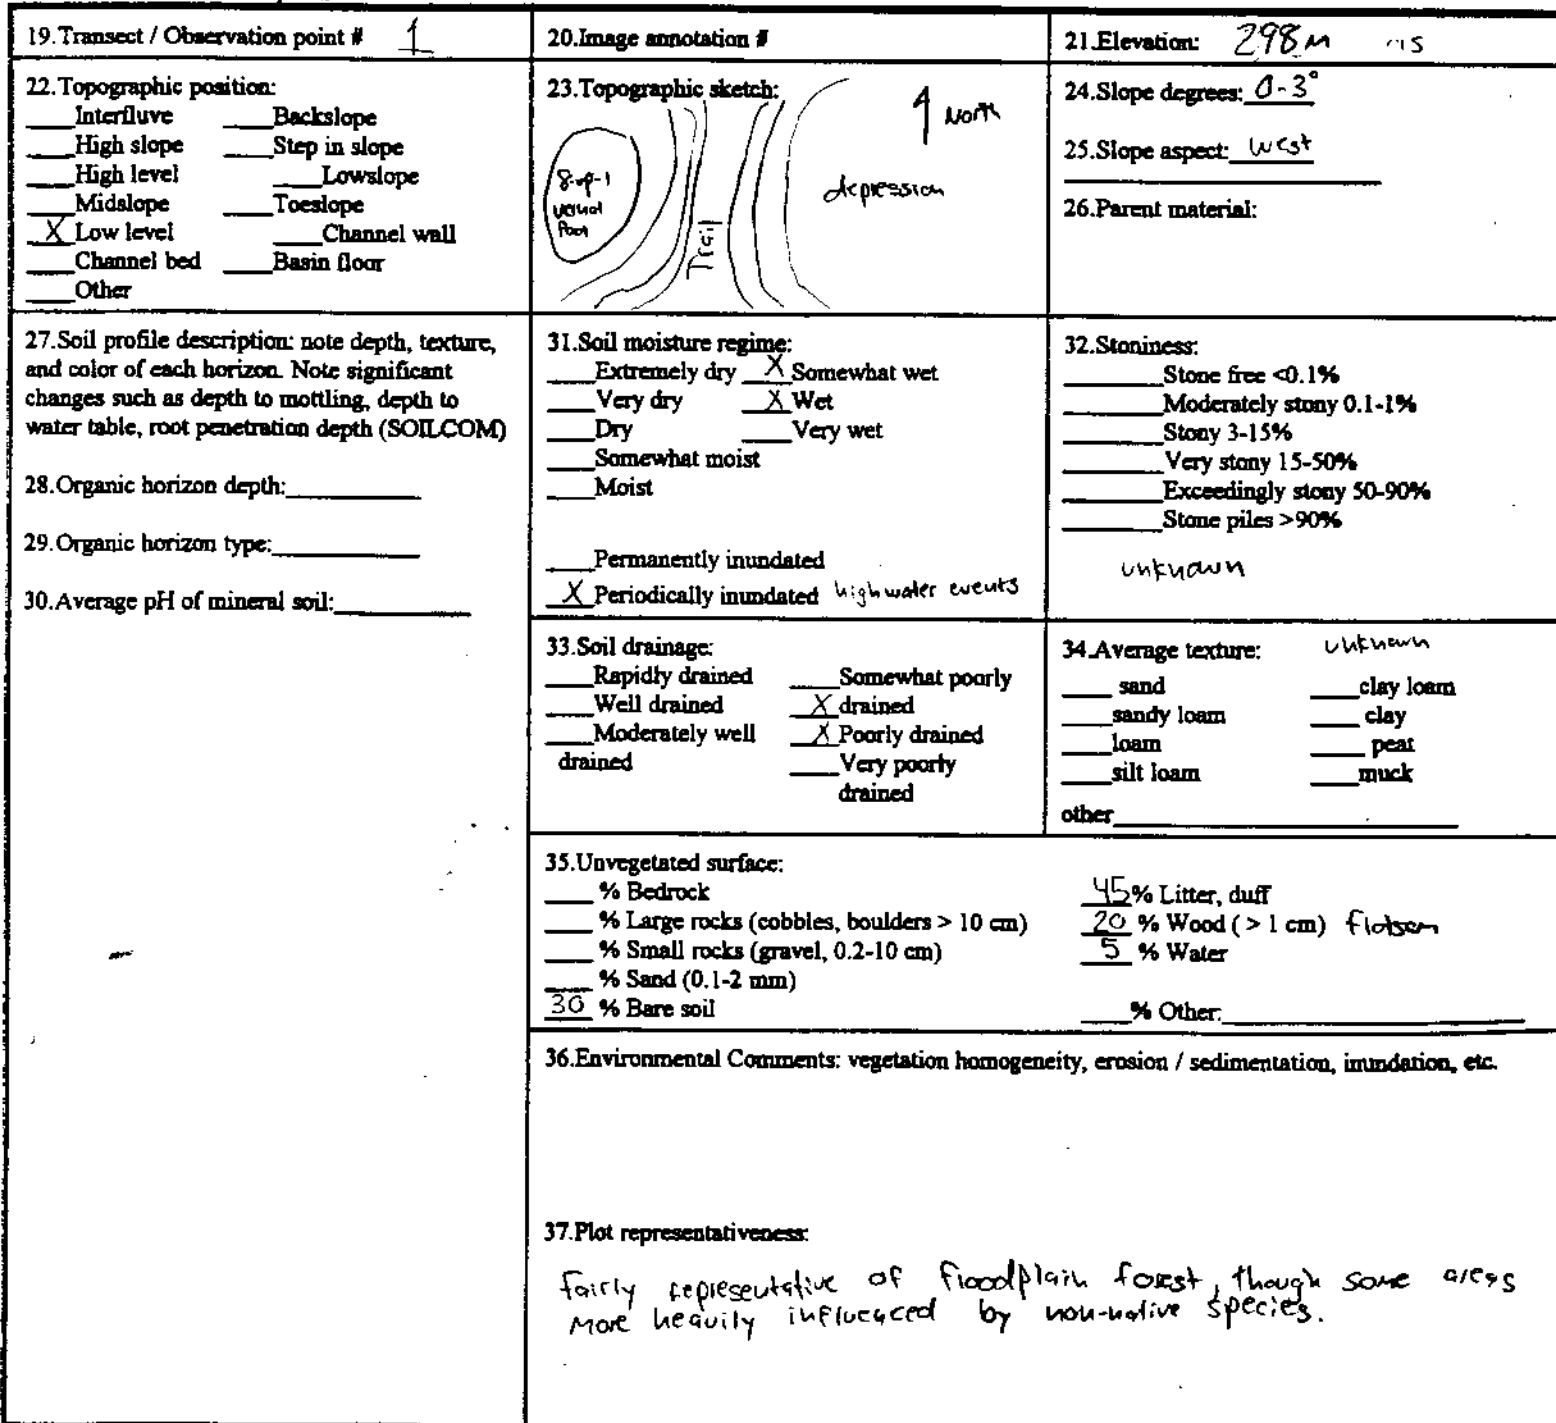 19.Transect / Observation point # 1
20.Image annotation #
21.Elevation: 298m
22.Topographic position:
___Interfluve ___Backslope
___High slope ___Step in slope
___High level ___Lowslope
___Midslope ___Toeslope
X Low level ___Channel wall
___Channel bed ___Basin floor
___Other
23.Topographic sketch:
North
8-vp-1
vernal
Pool
Trail
depression
24.Slope degrees: 0-3°
25.Slope aspect: West
26.Parent material:
27.Soil profile description: note depth, texture,
and color of each horizon. Note significant
changes such as depth to mottling, depth to
water table, root penetration depth (SOILCOM)
28.Organic horizon depth:___
29.Organic horizon type:___
30.Average pH of mineral soil:___
31.Soil moisture regime:
___Extremely dry X Somewhat wet
___Very dry X Wet
___Dry ___Very wet
___Somewhat moist
___Moist
___Permanently inundated
X Periodically inundated highwater events
32.Stoniness:
___Stone free <0.1%
___Moderately stony 0.1-1%
___Stony 3-15%
___Very stony 15-50%
___Exceedingly stony 50-90%
___Stone piles >90%
unknown
33.Soil drainage:
___Rapidly drained ___Somewhat poorly
___Well drained X drained
___Moderately well X Poorly drained
drained ___Very poorly
drained
34.Average texture: unknown
___ sand ___clay loam
___sandy loam ___ clay
___loam ___ peat
___silt loam ___muck
other___
35.Unvegetated surface:
___ % Bedrock 45% Litter, duff
___ % Large rocks (cobbles, boulders > 10 cm) 20 % Wood ( > 1 cm) flotsam
___ % Small rocks (gravel, 0.2-10 cm) 5 % Water
___ % Sand (0.1-2 mm)
30 % Bare soil ___% Other:___
36.Environmental Comments: vegetation homogeneity, erosion / sedimentation, inundation, etc.
37.Plot representativeness:
fairly representative of floodplain forest, though some areas
more heavily influenced by non-native species.